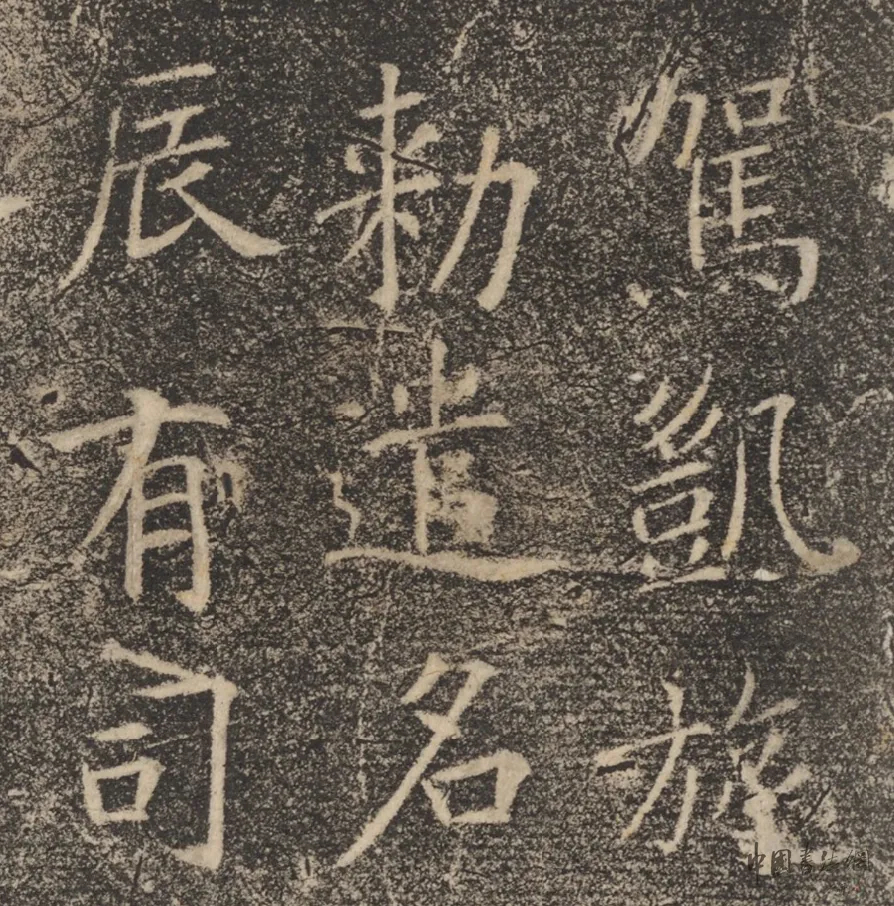 駕凱旋
勑遣名
辰有司
中国书法网